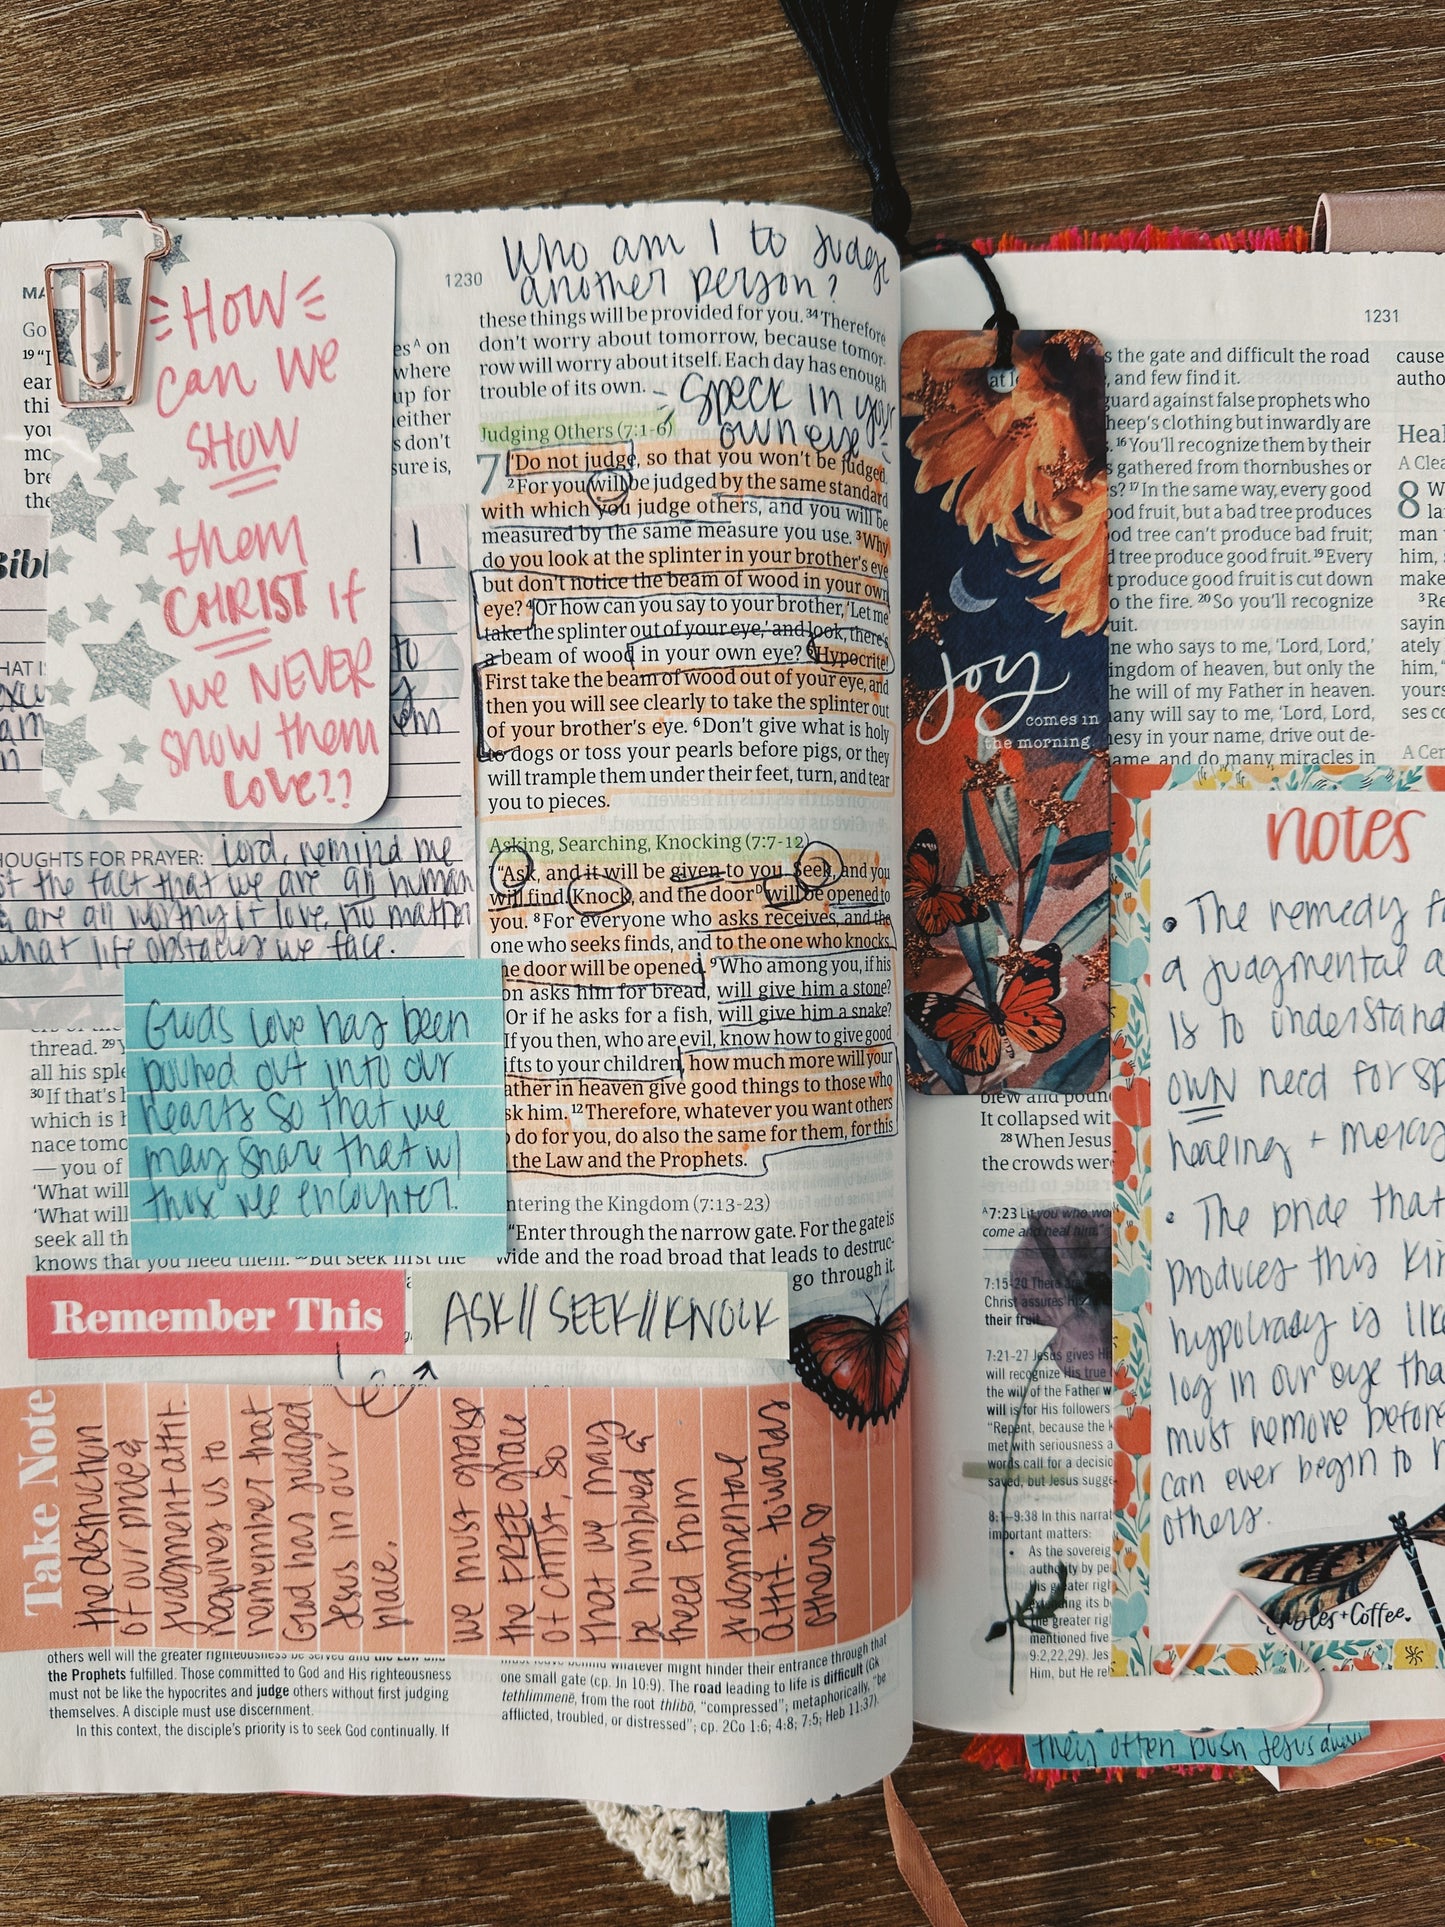 1230
Who am I to judge
another person?
HOW
can we
SHOW
them
CHRIST if
we NEVER
show them
LOVE??
MA
Go
19 "I
ear
thi
you
mo
bre
the
es A on
where
up for
neither
s don't
sure is,
Bibl
1
HAT I
THOUGHTS FOR PRAYER: Lord, remind me
of the fact that we are all human
& are all worthy of love, no matter
what life obstacles we face.
thread. 29 Y
all his sple
30 If that's h
which is h
nace tomo
— you of
'What will
'What will
seek all th
knows that you need them. 33 But seek first the
God's love has been
poured out into our
hearts so that we
may share that w/
those we encounter.
these things will be provided for you. 34 Therefore
don't worry about tomorrow, because tomor-
row will worry about itself. Each day has enough
trouble of its own.
Speck in your
own eye
Judging Others (7:1-6)
7 "Do not judge, so that you won't be judged.
2 For you will be judged by the same standard
with which you judge others, and you will be
measured by the same measure you use. 3 Why
do you look at the splinter in your brother's eye
but don't notice the beam of wood in your own
eye? 4 Or how can you say to your brother, 'Let me
take the splinter out of your eye,' and look, there's
a beam of wood in your own eye? 5 Hypocrite!
First take the beam of wood out of your eye, and
then you will see clearly to take the splinter out
of your brother's eye. 6 Don't give what is holy
to dogs or toss your pearls before pigs, or they
will trample them under their feet, turn, and tear
you to pieces.
Asking, Searching, Knocking (7:7-12)
7 "Ask, and it will be given to you. Seek, and you
will find. Knock, and the door D will be opened to
you. 8 For everyone who asks receives, and the
one who seeks finds, and to the one who knocks,
he door will be opened. 9 Who among you, if his
on asks him for bread, will give him a stone?
Or if he asks for a fish, will give him a snake?
If you then, who are evil, know how to give good
ifts to your children, how much more will your
ather in heaven give good things to those who
sk him. 12 Therefore, whatever you want others
o do for you, do also the same for them, for this
the Law and the Prophets.
ntering the Kingdom (7:13-23)
"Enter through the narrow gate. For the gate is
wide and the road broad that leads to destruc-
go through it.
Remember This
ASK // SEEK // KNOCK
Take Note
the destruction
of our pride &
judgment attit.
requires us to
remember that
God has judged
Jesus in our
place.
we must grasp
the FREE grace
of Christ, so
that we may
be humbled &
freed from
judgmental
attit. towards
others
others will the greater righteousness be served and the Law and
the Prophets fulfilled. Those committed to God and His righteousness
must not be like the hypocrites and judge others without first judging
themselves. A disciple must use discernment.
In this context, the disciple's priority is to seek God continually. If
must leave behind whatever might hinder their entrance through that
one small gate (cp. Jn 10:9). The road leading to life is difficult (Gk
tethlimmenē, from the root thlibō, "compressed"; metaphorically, "be
afflicted, troubled, or distressed"; cp. 2Co 1:6; 4:8; 7:5; Heb 11:37).
joy
comes in
the morning
1231
s the gate and difficult the road
, and few find it.
guard against false prophets who
heep's clothing but inwardly are
. 16 You'll recognize them by their
s gathered from thornbushes or
s? 17 In the same way, every good
ood fruit, but a bad tree produces
od tree can't produce bad fruit;
d tree produce good fruit. 19 Every
t produce good fruit is cut down
o the fire. 20 So you'll recognize
uit.
ne who says to me, 'Lord, Lord,'
ingdom of heaven, but only the
he will of my Father in heaven.
any will say to me, 'Lord, Lord,
esy in your name, drive out de-
ame, and do many miracles in
blew and pound
It collapsed wit
28 When Jesus
the crowds were
A 7:23 Lit you who wor
come and heal him."
7:15-20 There are
Christ assures His
their fruit.
7:21-27 Jesus gives H
will recognize His true
the will of the Father w
will is for His followers
"Repent, because the k
met with seriousness a
words call for a decisio
saved, but Jesus sugge
8:1–9:38 In this narrat
important matters:
• As the sovereig
authority by pe
His greater righ
extending its b
the greater rig
mentioned five
9:2,22,29). Jes
Him, but He re
cause
autho
Heal
A Clea
8 W
la
man
him,
make
3 Re
sayin
ately
him,
yours
ses co
A Cer
notes
• The remedy f
a judgmental a
is to understand
OWN need for sp
healing + mercy
• The pride that
produces this kin
hypocrisy is like
log in our eye tha
must remove before
can ever begin to h
others.
+Coffee.
they often push Jesus away